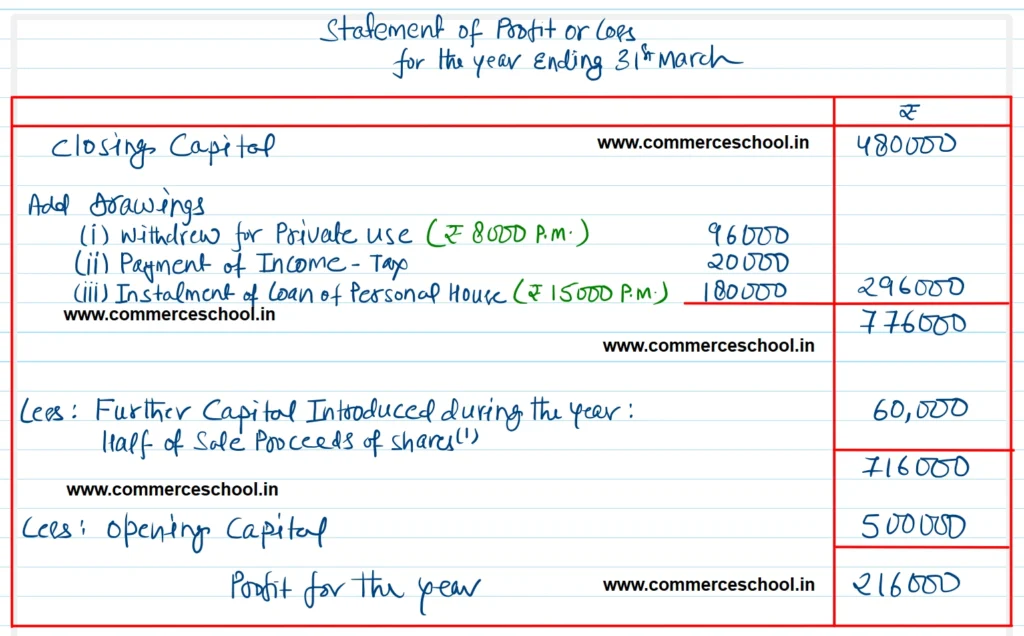 Statement of Profit or Loss
for the year Ending 31st March
₹
Closing Capital www.commerceschool.in 480000
Add Drawings
(i) Withdrew for Private use (₹ 8000 P.M.) 96000
(ii) Payment of Income-Tax 20000
(iii) Instalment of Loan of Personal House (₹ 15000 P.M.) 180000 296000
www.commerceschool.in 776000
www.commerceschool.in
Less: Further Capital Introduced during the year: 60,000
Half of Sale Proceeds of shares(1)
716000
www.commerceschool.in
Less: Opening Capital 500000
Profit for the year www.commerceschool.in 216000